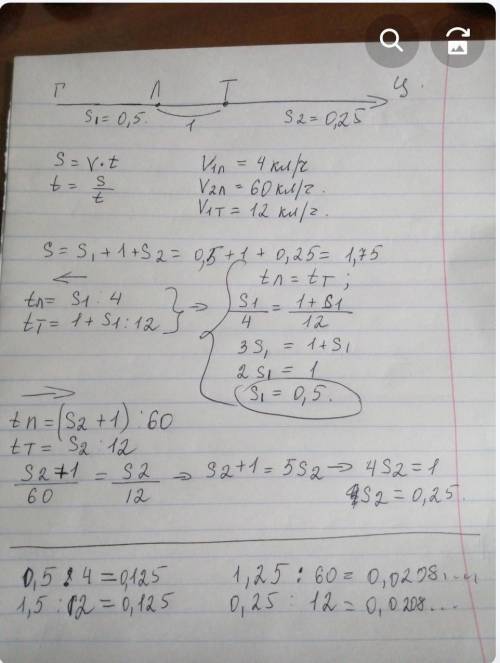 Г Л Т Ц.
S₁ = 0,5. 1 S2 = 0,25
S = V · t V₁п = 4 км/г
t = S/t V₂п = 60 км/г.
V₁т = 12 км/г.
S = S₁ + 1 + S₂ = 0,5 + 1 + 0,25 = 1,75
← tп = tт ;
tп = S₁ : 4 } ⇒ S1/4 = 1+S1/12
tт = 1 + S₁ : 12
3S₁ = 1 + S₁
2S₁ = 1
S₁ = 0,5.
→
tп = (S2 + 1) : 60
tт = S₂ : 12
S2+1/60 = S2/12 ⇒ S2+1 = 5S2 → 4S2 = 1
S2 = 0,25.
0,5 : 4 = 0,125 1,25 : 60 = 0,0208....
1,5 : 12 = 0,125 0,25 : 12 = 0,0208...